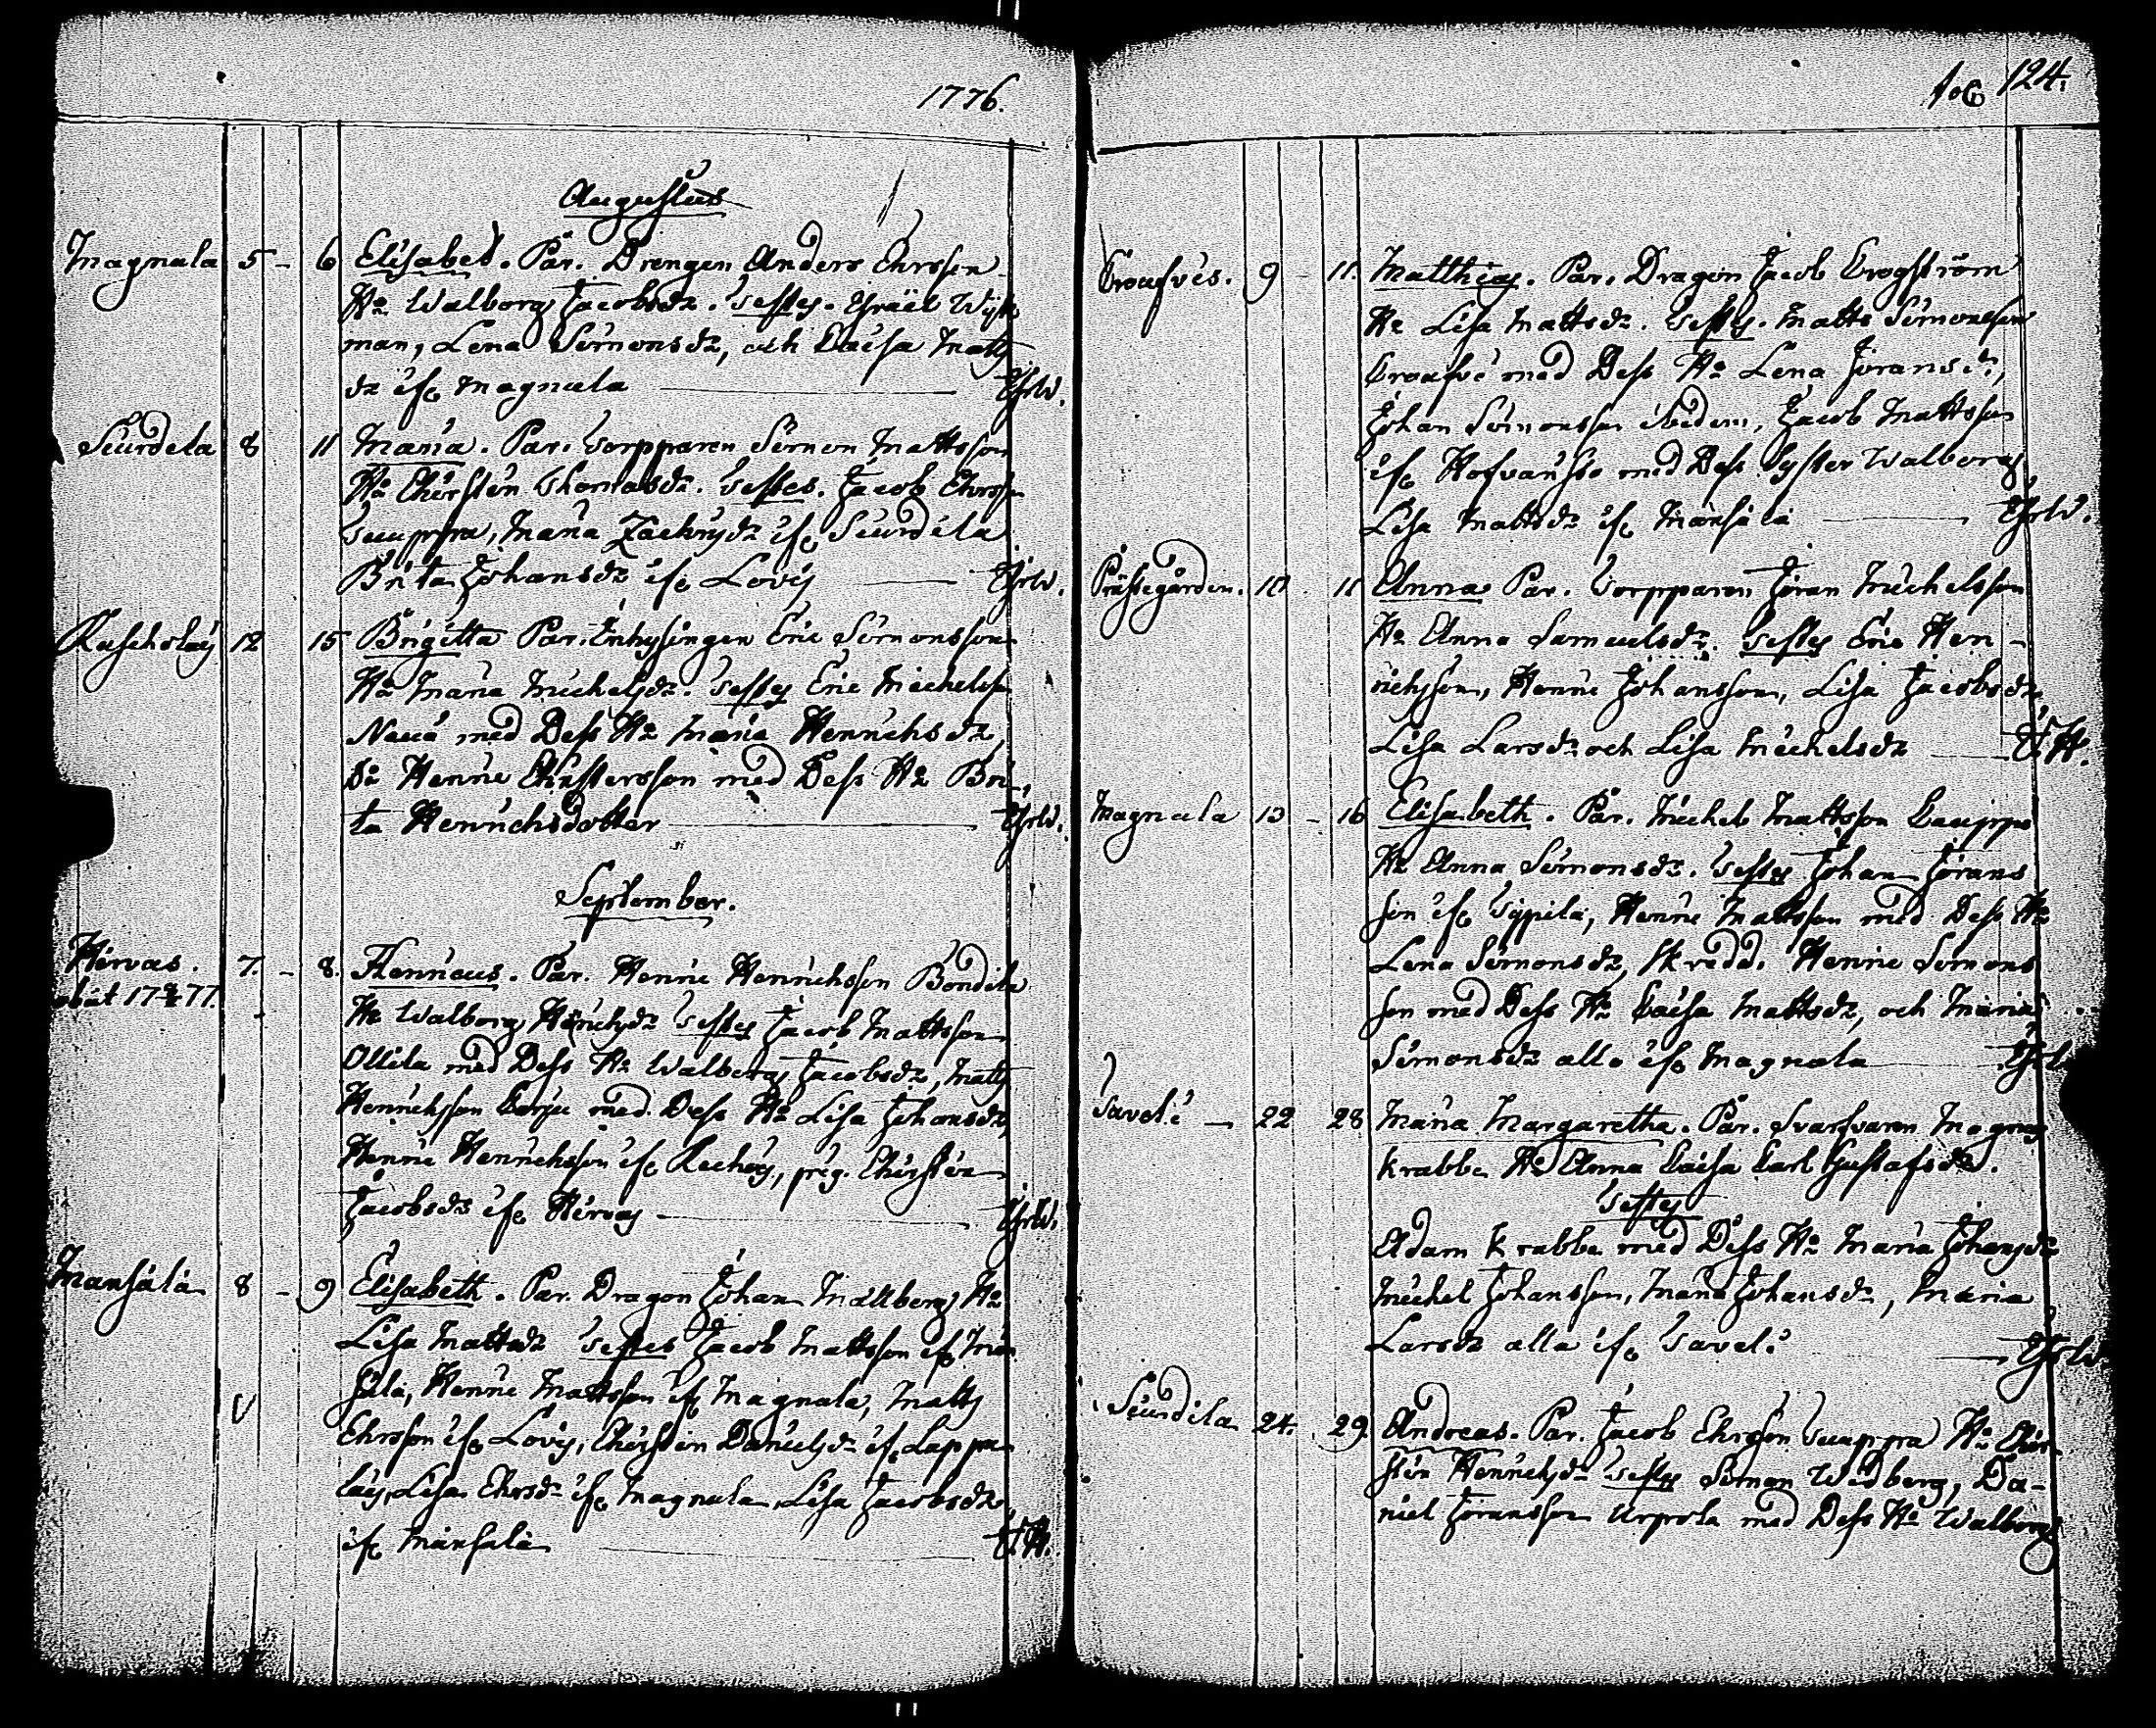 1776.
Augustus
Magnula 5 - 6 Elisabet. Par. Drengen Anders Ehrsson
Hu Walborg Jacobsdr. Testes. Israël Wijk
man, Lena Simonsdr, och Caisa Matts
dr ifr. Magnula
Siurdela 8 11 Maria. Par. Torpparen Simon Mattsson
Hu Christin Thomasdr. Testes. Jacob Ehrsson
Maria Zachrisdr ifr Siurdela
Brita Johansdr ifr Lovis
12 15 Brigitta Par. Inhysingen Eric Simonsson
Hu Maria Michelsdr. Testes Eric Michelss
med Dess Hu Maria Henrichsdr,
Do Henric Christersson med Dess Hu Bri
ta Henrichsdotter
September.
Hirvas. 7. - 8. Henricus. Par. Henric Henrichsson Bondila
obiit 17 77.
Hu Walborg Henrichsdr Testes Jacob Mattsson
Ollila med Dess Hu Walborg Jacobsdr, Matts
Henrichsson med Dess Hu Lisa Johansdr,
Henric Henrichsson ifr pig. Christin
Jacobsdr ifr Hirvas
Mansala 8 - 9 Elisabeth. Par. Dragon Johan Mallberg, Hu
Lisa Mattsdr Testes Jacob Mattsson ifr Man
sala, Henric Mattsson ifr Magnula, Matts
Ehrsson ifr Lovis, Christin Danielsdr ifr Lappa
Lisa Ehrsdr ifr Magnula, Lisa Jacobsdr
ifr Mansala
106 124.
9 - 11. Matthias. Par. Dragon Jacob
Hu Lisa Mattsdr. Testes. Matts Simonsson
med Dess Hu Lena Joransdr,
Johan Simonsson ibidem, Jacob Mattsson
ifr med Dess Syster Walborg
Lisa Mattsdr ifr Mansala
Prästegården. 10. 11 Anna Par. Torpparen Joran Michelsson
Hu Anna Samuelsdr. Testes Eric Hen-
richsson, Henric Johansson, Lisa Jacobsdr
Lisa Larsdr och Lisa Michelsdr
Magnula 13 - 16 Elisabeth. Par. Michel Mattsson
Hu Anna Simonsdr. Testes Johan Jorans
son ifr Sippila, Henric Mattsson med Dess Hu
Lena Simonsdr, Skredd. Henric Simons
son med Dess Hu Caisa Mattsdr, och Maria
Simonsdr alle ifr Magnula
Tavela - 22 28 Maria Margaretha. Par. Svarfvaren Magnus
Krabbe Hu Anna Caisa Carl Gustafsdr.
Testes
Adam Krabbe med Dess Hu Maria Johansdr
Michel Johansson, Maria Johansdr, Maria
Larsdr alla ifr Tavela
Siurdila 24. 29. Andreas. Par. Jacob Ehrsson Hu Chri
stin Henrichsdr Testes Simon Widberg, Da-
niel Joransson Arpola med Dess Hu Walborg